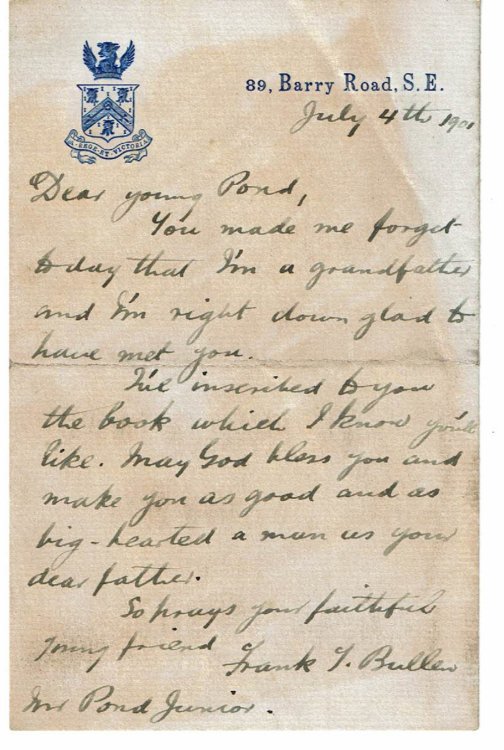 A REGE ET VICTORIA
89, Barry Road, S.E.
July 4th 1901
Dear young Pond,
You made me forget
today that I'm a grandfather
and I'm right down glad to
have met you.
I've inscribed to you
the book which I know you'll
like. May God bless you and
make you as good and as
big-hearted a man as your
dear father.
So prays your faithful
young friend
Frank T. Bullen
Mr Pond Junior.